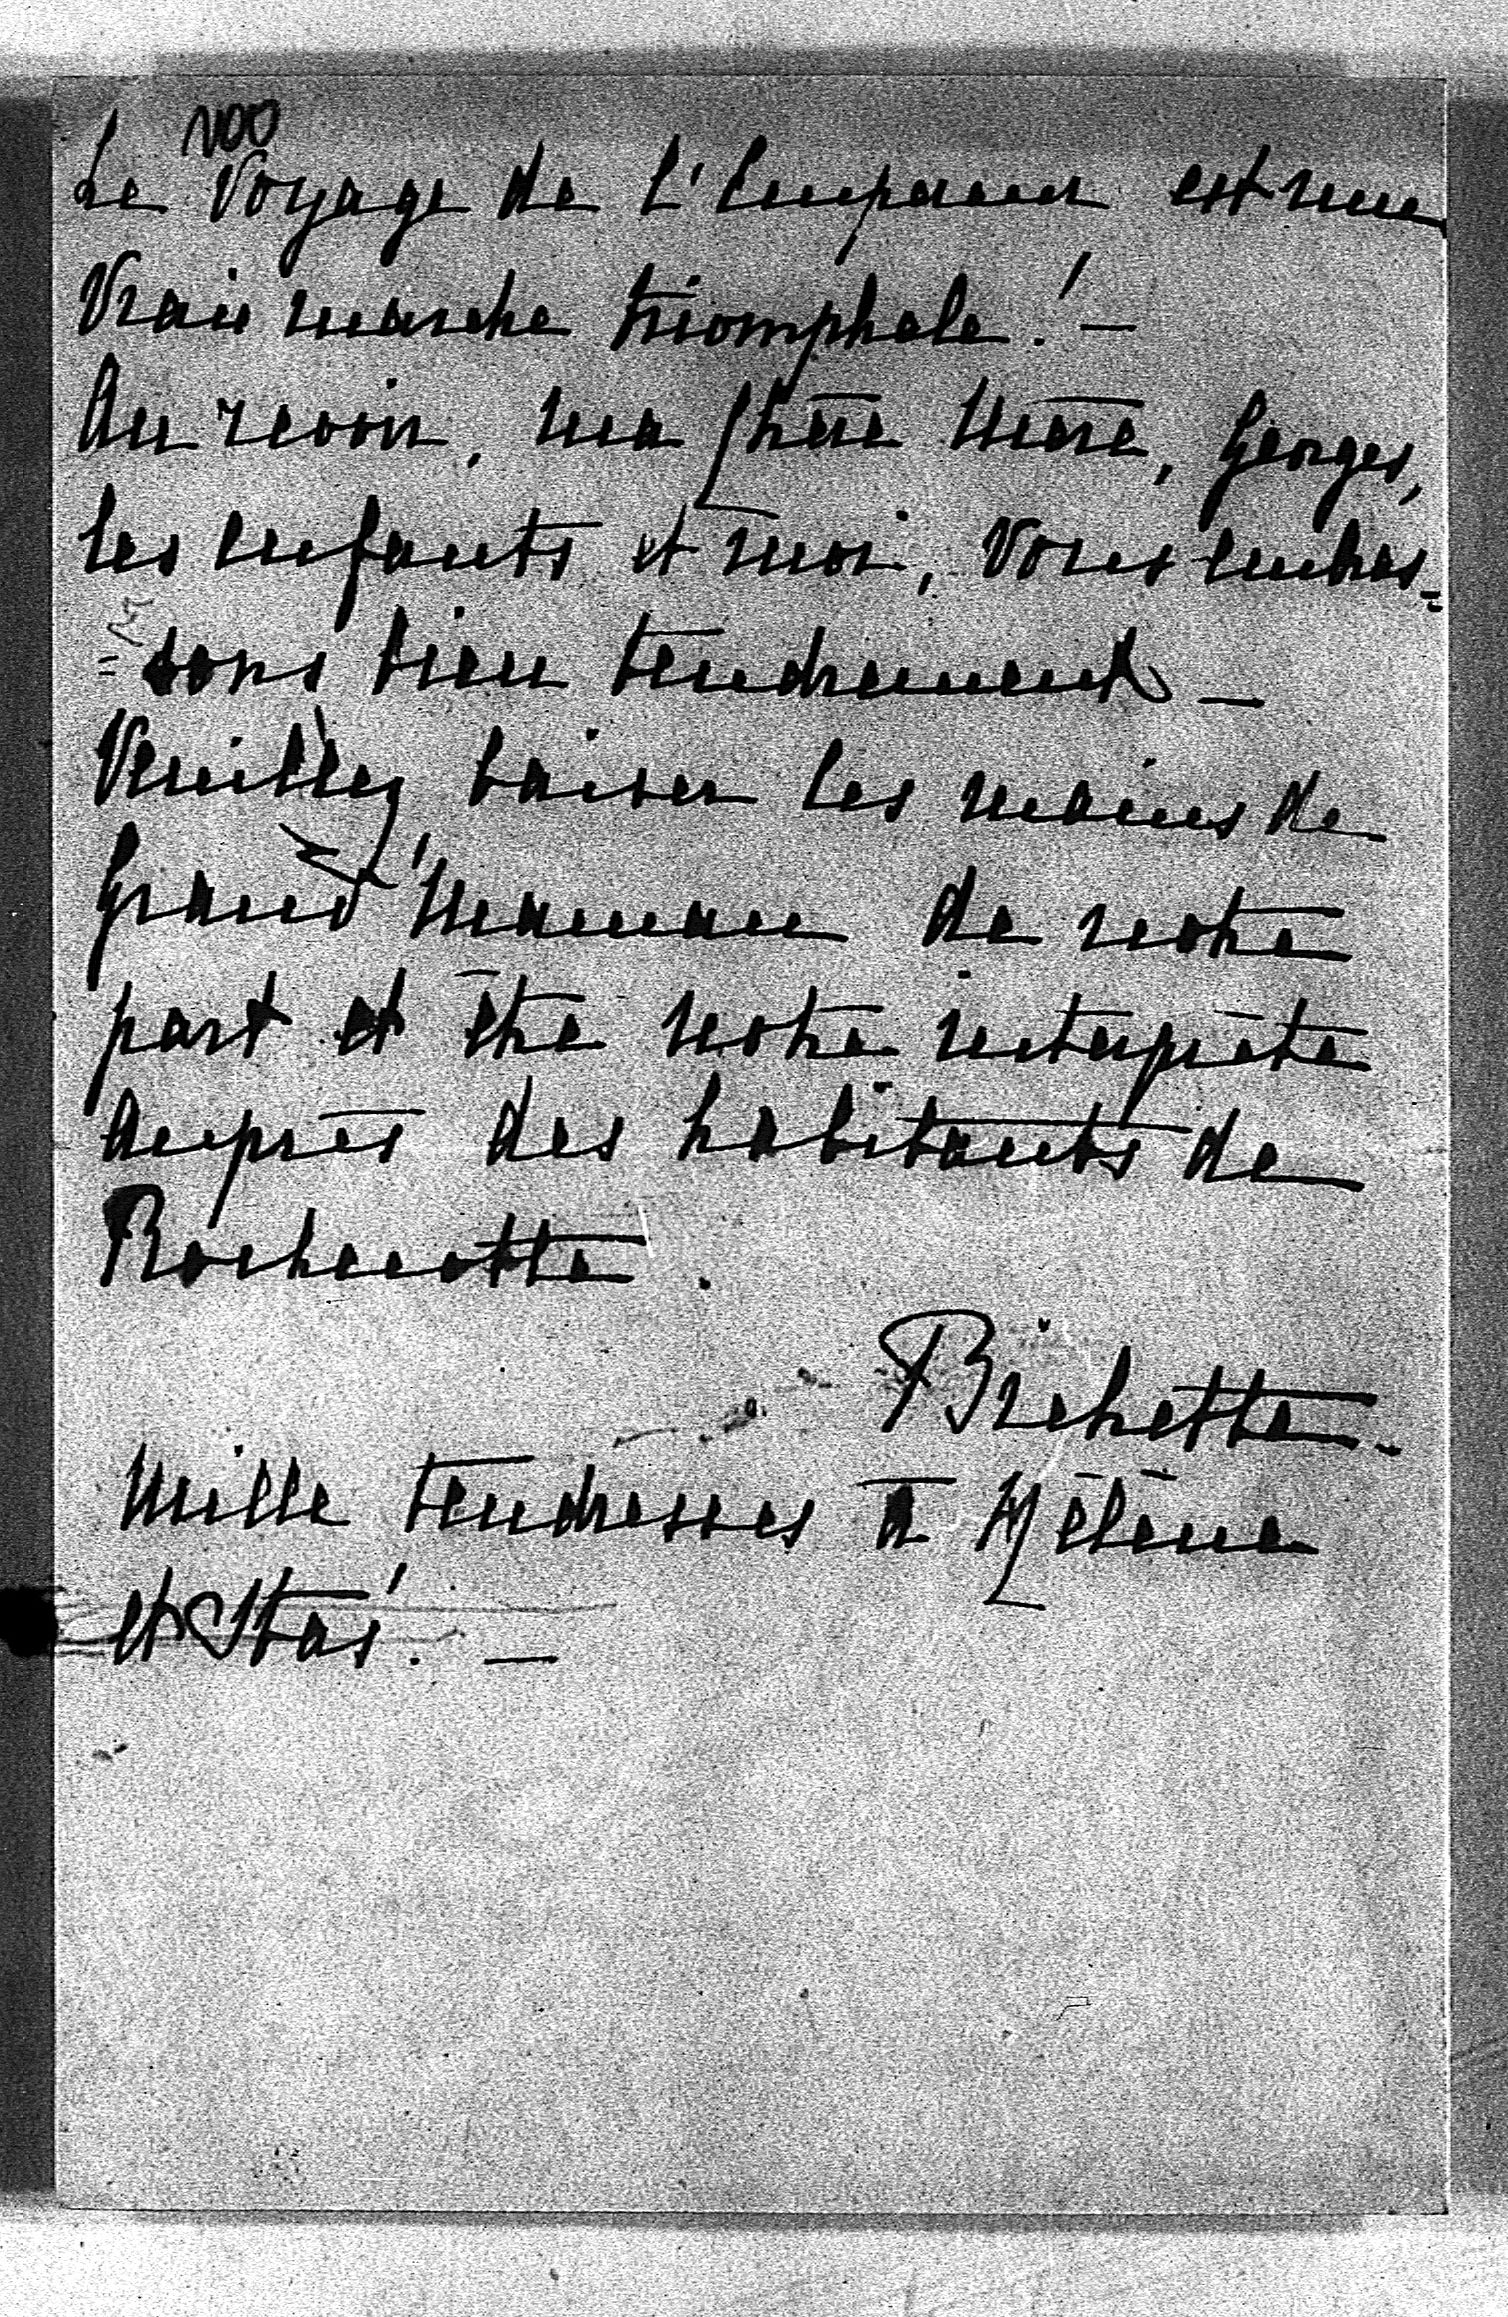 100
Le Voyage de L'Empereur est une
Vraie marche triomphale! —
Au revoir, ma chère Mère, Georges,
les enfants et moi, Vous embras-
=sons bien tendrement —
Veuillez baiser les mains de
Grand'Maman de notre
part et être notre interprète
auprès des habitants de
Rochecotte.
Bichette.
Mille tendresses à Hélène
et Stas! —